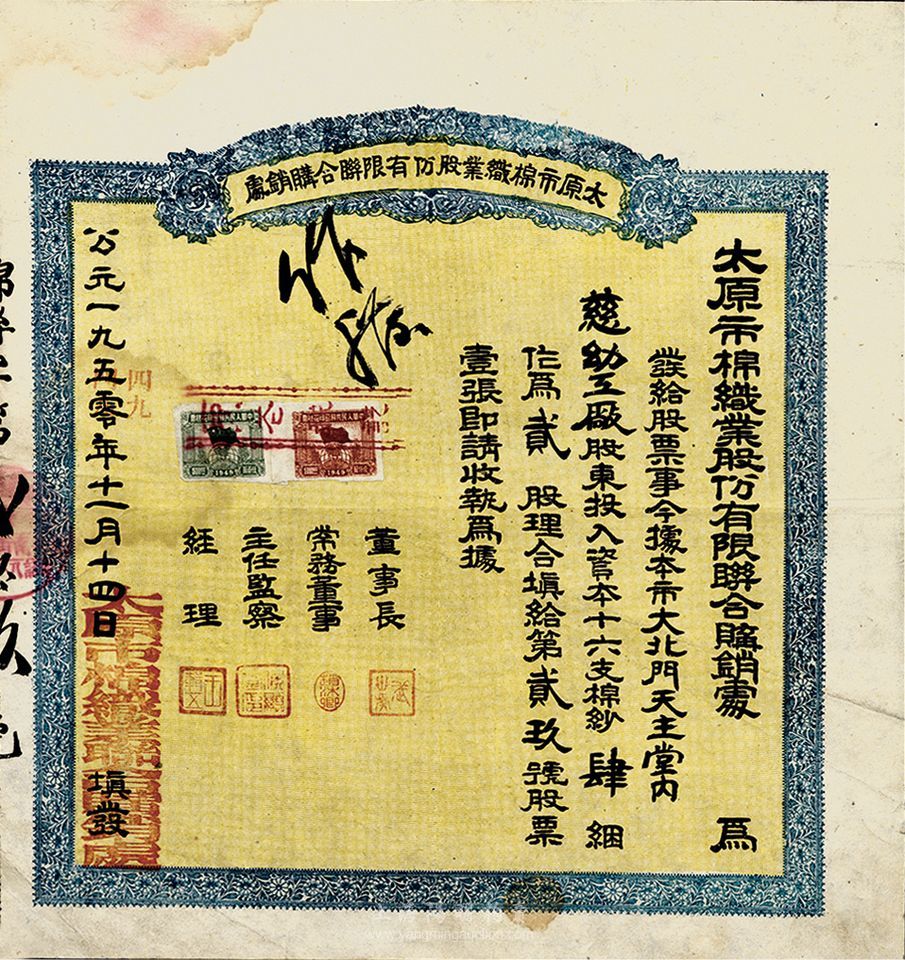 太原市棉織業股份有限聯合購銷處
太原市棉織業股份有限聯合購銷處 為
發給股票事今據本市大北門天主堂內
慈幼工廠股東投入資本十六支棉紗肆綑
作為貳股理合填給第貳玖號股票
壹張即請收執為據
董事長
常務董事
主任監察
經理
公元一九五零年十一月十四日 填發
四九
1949
1949
www.yangmingauction.com